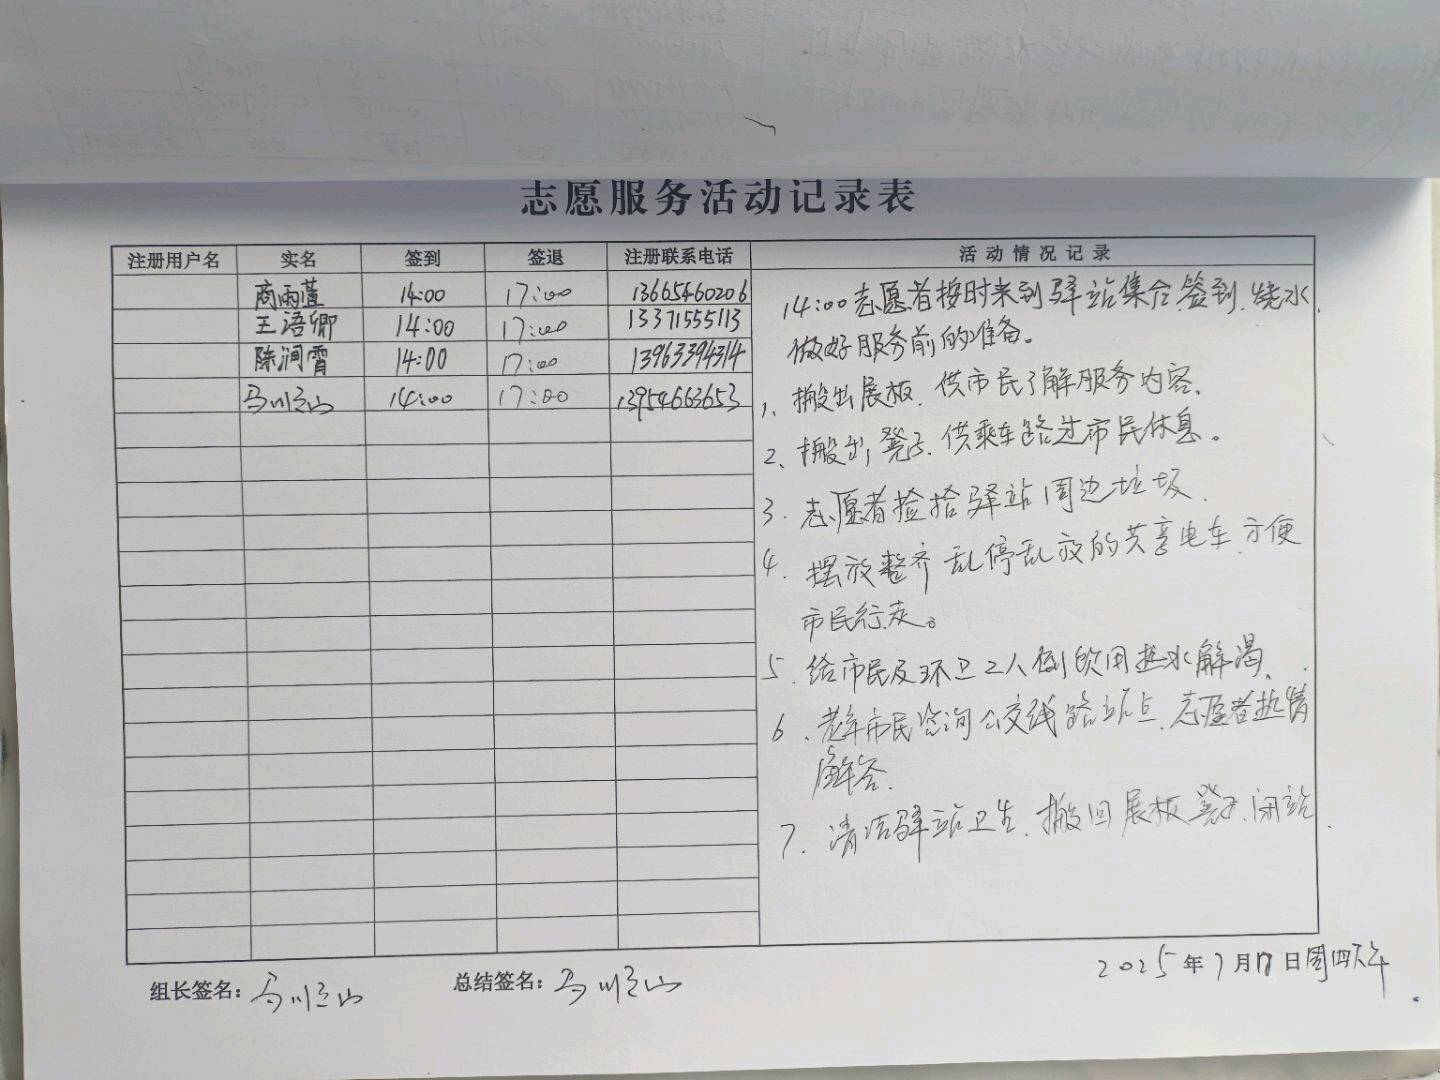 志愿服务活动记录表
注册用户名 实名 签到 签退 注册联系电话 活动情况记录
商雨萱 14:00 17:00 13665460206
王语卿 14:00 17:00 13371555113
陈润霄 14:00 17:00 13963394314
14:00 17:00 13954663653
14:00志愿者按时来到驿站集合.签到.烧水
做好服务前的准备。
1、搬出展板.供市民了解服务内容.
2、搬出凳子.供乘车路过市民休息。
3.志愿者捡拾驿站周边垃圾.
4.摆放整齐乱停乱放的共享电车.方便
市民行走。
5.给市民及环卫工人倒饮用热水解渴.
6.老年市民咨询公交线路站点.志愿者热情
解答.
7.清洁驿站卫生.搬回展板凳子.闭站.
组长签名: 总结签名:
2025年7月17日周四下午